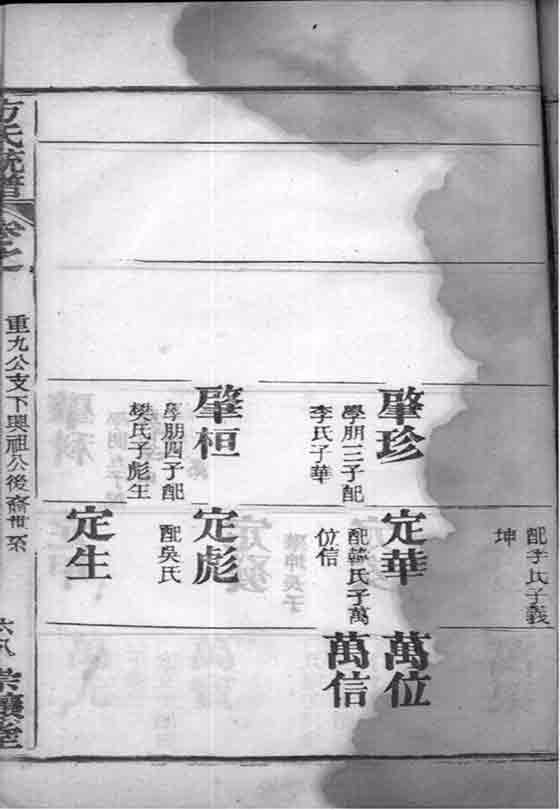 配李氏子義
坤
肇珍
學朋三子配
李氏子華
定華
配韓氏子萬
位信
萬位
萬信
肇桓
學朋四子配
樊氏子彪生
定彪
配吳氏
定生
方氏統譜
卷之一
重九公支下興祖公後裔世系
六八